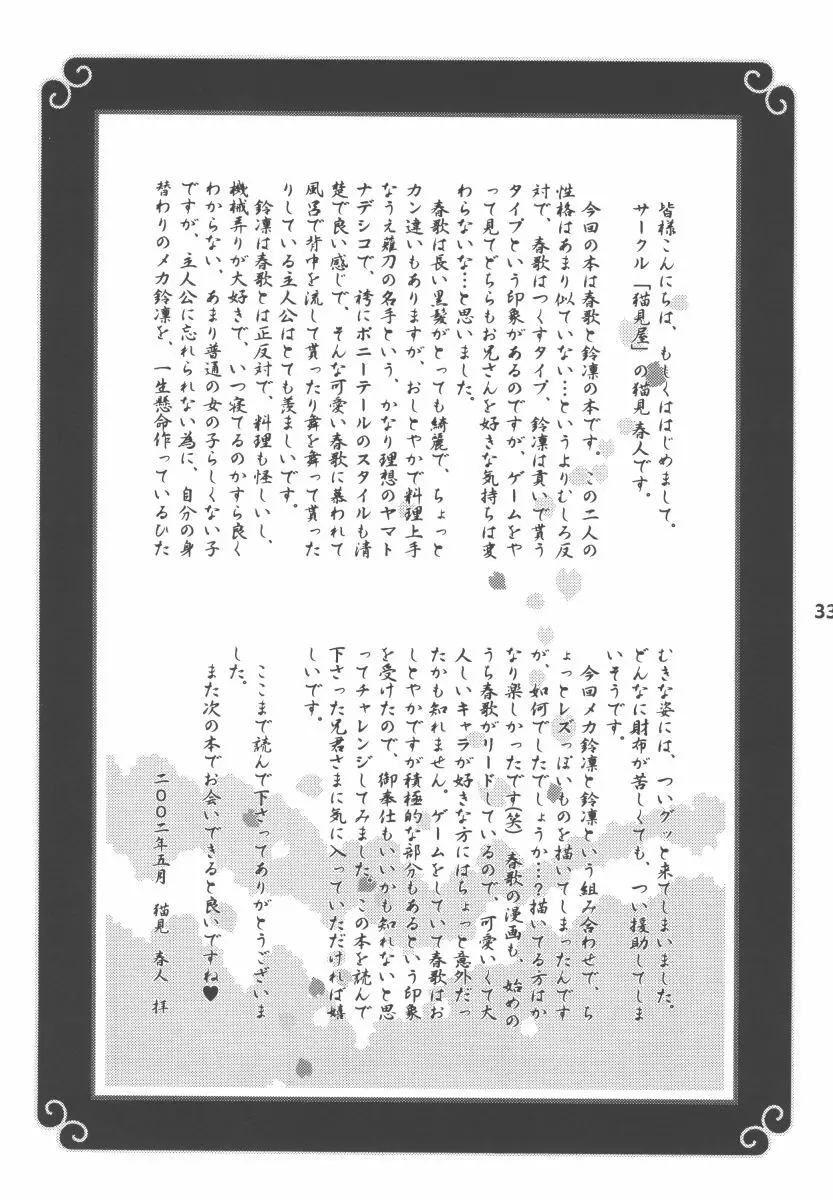 皆様こんにちは、ももしくははじめまして。
サークル「猫見屋」の猫見 春人です。
今回の本は春歌と鈴凛の本です。この二人の
性格はあまり似ていない…というよりむしろ反
対で、春歌はつくすタイプ、鈴凛は貢いで貰う
タイプという印象があるのですが、ゲームをや
って見てどちらもお兄さんを好きな気持ちは変
わらないな…と思いました。
春歌は長い黒髪がとっても綺麗で、ちょっと
カン違いもありますが、おしとやかで料理上手
なうえ薙刀の名手という、かなり理想のヤマト
ナデシコで、袴にポニーテールのスタイルも清
楚で良い感じで、そんな可愛い春歌に慕われて
風呂で背中を流して貰ったり舞を舞って貰った
りしている主人公はとても羨ましいです。
鈴凛は春歌とは正反対で、料理も怪しいし、
機械弄りが大好きで、いつ寝てるのかすら良く
わからない、あまり普通の女の子らしくない子
ですが、主人公に忘れられない為に、自分の身
替わりのメカ鈴凛を、一生懸命作っているひた
むきな姿には、ついグッと来てしまいました。
どんなに財布が苦しくても、つい援助してしま
いそうです。
今回メカ鈴凛と鈴凛という組み合わせで、ち
ょっとレズっぽいものを描いてしまったんです
が、如何でしたでしょうか…?描いてる方はか
なり楽しかったです(笑) 春歌の漫画も、始めの
うち春歌がリードしているので、可愛いくて大
人しいキャラが好きな方にはちょっと意外だっ
たかも知れません。ゲームをしていて春歌はお
しとやかですが積極的な部分もあるという印象
を受けたので、御奉仕もいいかも知れないと思
ってチャレンジしてみました。この本を読んで
下さった兄君さまに気に入っていただければ嬉
しいです。
ここまで読んで下さってありがとうございま
した。
また次の本でお会いできると良いですね♥
二００二年五月 猫見 春人 拝
33